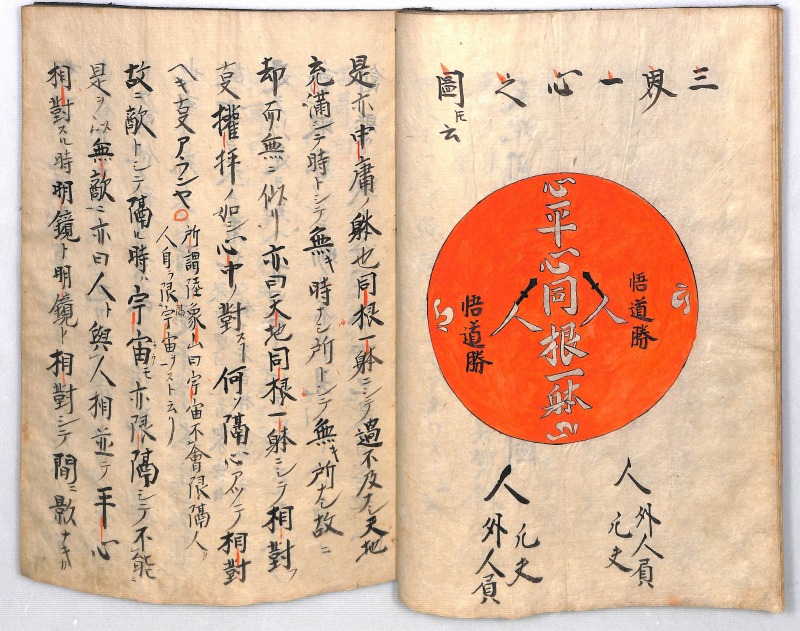 三界一心之
圖ニ云
心平心同根一躰心
悟道勝
人
悟道勝
人
人外人員
凡夫
人外人員
凡夫
是亦中庸ノ躰也同根一躰ニシテ過不及ナシ天地
充滿シテ時トシテ無キ時ナシ所トシテ無キ所ナシ故ニ
却而無ニ似リ亦曰天地同根一躰ニシテ相對ノ
權拜ノ如シ心中對スト何ノ隔心アツテ相對
ヘキ アランヤ
所謂陸象山曰宇宙不會限隔人ヲ
人自ラ限隔宇宙ヲスト云リ
故ニ敵トシテ隔ル時ハ宇宙モ亦限隔シテ不能
是ヲ以無敵ニ亦曰人ト與人相並テ平心
相對スル時明鏡ト明鏡ト相對シテ間ニ影ナキカ